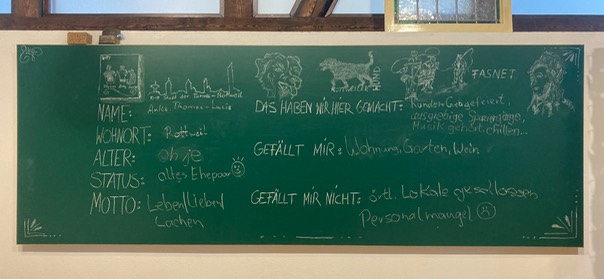 Rottweiler HUND
FASNET
NAME: Anke Thomas-Lucis
WOHNORT: Rottweil
ALTER: oh je
STATUS: altes Ehepaar
MOTTO: Leben/Lieben/
Lachen
DAS HABEN WIR HIER GEMACHT: Runden Geb. gefeiert,
ausgiebige Spaziergänge,
Musik gehört, chillen...
GEFÄLLT MIR: Wohnung, Garten, Wein
GEFÄLLT MIR NICHT: örtl. Lokale geschlossen
Personalmangel